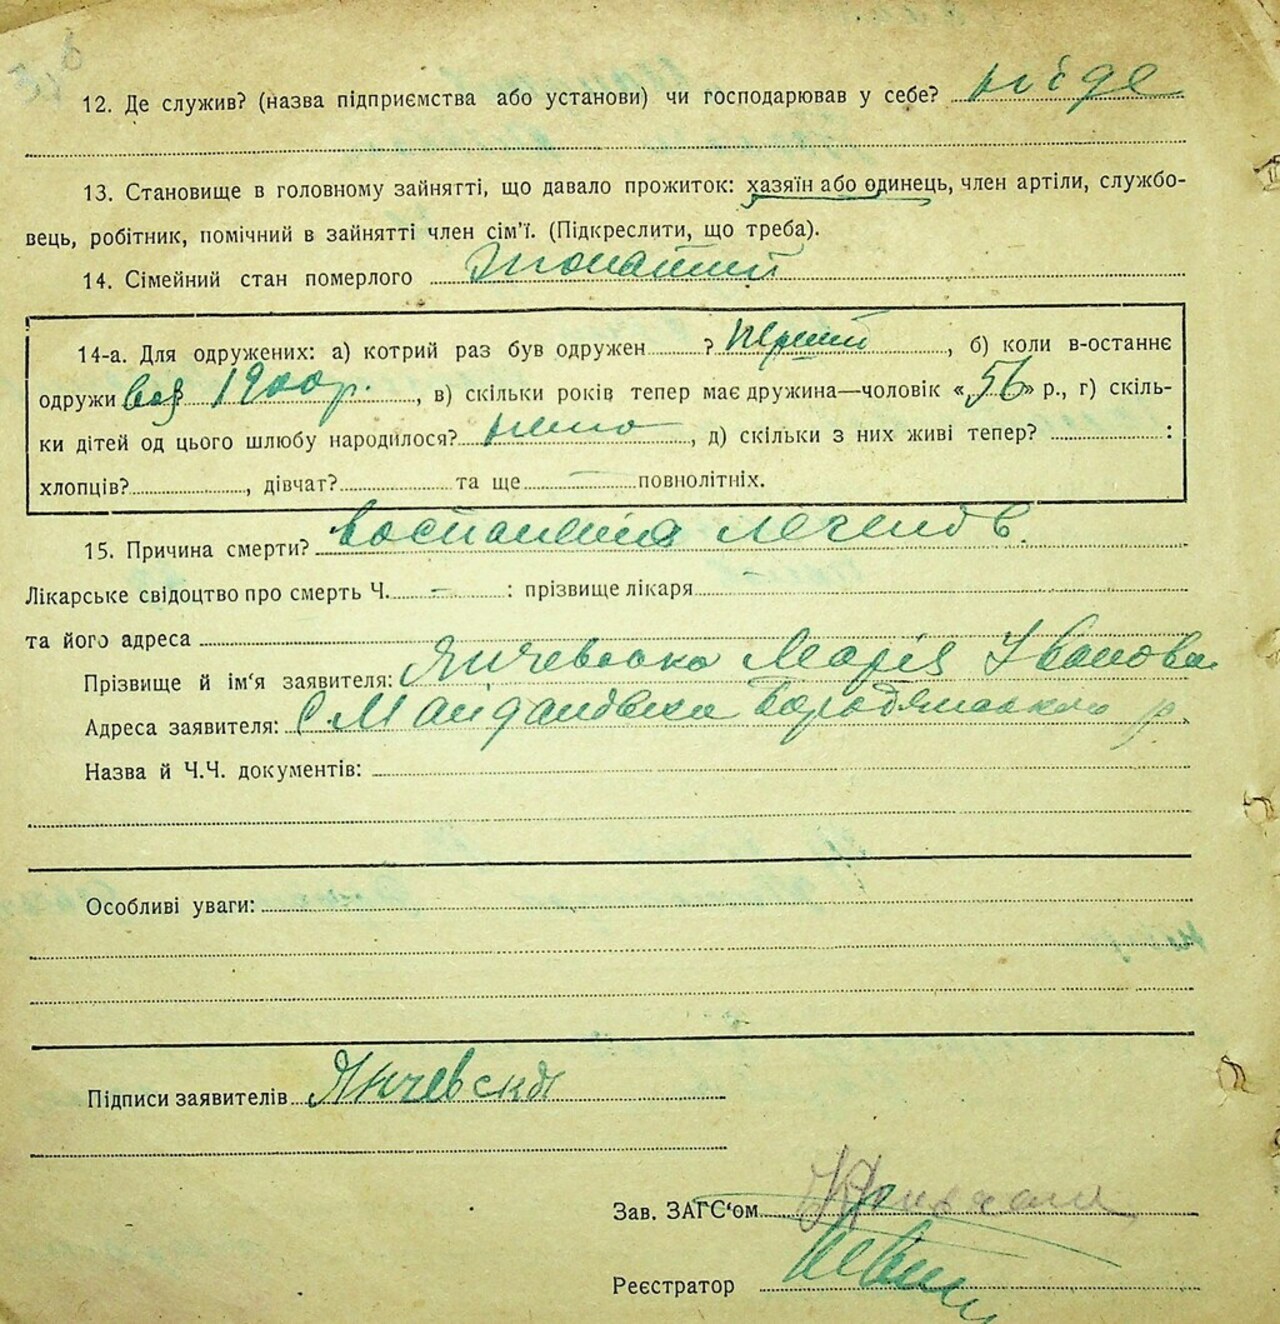 12. Де служив? (назва підприємства або установи) чи господарював у себе? нігде
13. Становище в головному зайнятті, що давало прожиток: хазяїн або одинець, член артілі, службо-
вець, робітник, помічний в зайнятті член сім'ї. (Підкреслити, що треба).
14. Сімейний стан померлого Жонатий
14-а. Для одружених: а) котрий раз був одружен ? перший, б) коли в-останнє
одружи вся 1900 р., в) скільки років тепер має дружина—чоловік «56» р., г) скіль-
ки дітей од цього шлюбу народилося? нема, д) скільки з них живі тепер? :
хлопців? , дівчат? та ще — повнолітніх.
15. Причина смерти? воспаления легенів.
Лікарське свідоцтво про смерть Ч. – : прізвище лікаря –
та його адреса
Прізвище й ім'я заявителя: Янчевська Марія Іванова
Адреса заявителя: С. Майданівка Бородянського р.
Назва й Ч.Ч. документів:
Особливі уваги:
Підписи заявителів Янчевска
Зав. ЗАГС'ом
Реєстратор